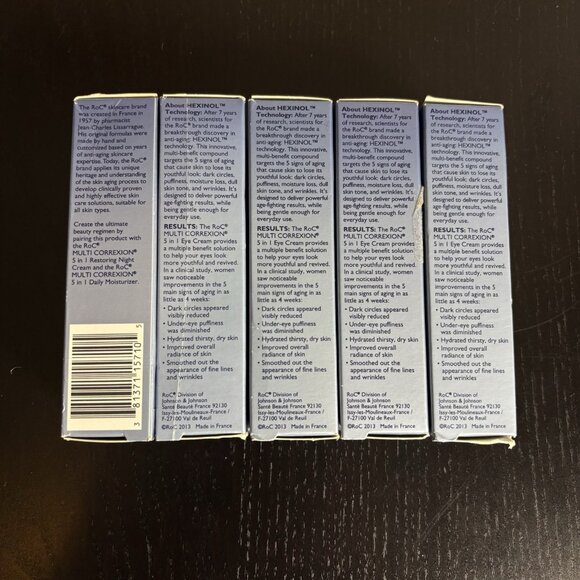 The RoC® skincare brand
was created in France in
1957 by pharmacist
Jean-Charles Lissarrague.
His original formulas were
made by hand and
customized based on years
of anti-aging skincare
expertise. Today, the RoC®
brand applies its unique
heritage and understanding
of the skin aging process to
develop clinically proven
and highly effective skin
care solutions, suitable for
all skin types.
Create the ultimate
beauty regimen by
pairing this product with
the RoC®
MULTI CORREXION®
5 in 1 Restoring Night
Cream and the RoC®
MULTI CORREXION®
5 in 1 Daily Moisturizer.
3 81371 15710 5
About HEXINOL™
Technology: After 7 years
of research, scientists for
the RoC® brand made a
breakthrough discovery in
anti-aging: HEXINOL™
technology. This innovative,
multi-benefit compound
targets the 5 signs of aging
that cause skin to lose its
youthful look: dark circles,
puffiness, moisture loss, dull
skin tone, and wrinkles. It's
designed to deliver powerful
age-fighting results, while
being gentle enough for
everyday use.
RESULTS: The RoC®
MULTI CORREXION®
5 in 1 Eye Cream provides
a multiple benefit solution
to help your eyes look
more youthful and revived.
In a clinical study, women
saw noticeable
improvements in the 5
main signs of aging in as
little as 4 weeks:
• Dark circles appeared
visibly reduced
• Under-eye puffiness
was diminished
• Hydrated thirsty, dry skin
• Improved overall
radiance of skin
• Smoothed out the
appearance of fine lines
and wrinkles
RoC® Division of
Johnson & Johnson
Santé Beauté France 92130
Issy-les-Moulineaux-France /
F-27100 Val de Reuil
©RoC 2013 Made in France
About HEXINOL™
Technology: After 7 years
of research, scientists for
the RoC® brand made a
breakthrough discovery in
anti-aging: HEXINOL™
technology. This innovative,
multi-benefit compound
targets the 5 signs of aging
that cause skin to lose its
youthful look: dark circles,
puffiness, moisture loss, dull
skin tone, and wrinkles. It's
designed to deliver powerful
age-fighting results, while
being gentle enough for
everyday use.
RESULTS: The RoC®
MULTI CORREXION®
5 in 1 Eye Cream provides
a multiple benefit solution
to help your eyes look
more youthful and revived.
In a clinical study, women
saw noticeable
improvements in the 5
main signs of aging in as
little as 4 weeks:
• Dark circles appeared
visibly reduced
• Under-eye puffiness
was diminished
• Hydrated thirsty, dry skin
• Improved overall
radiance of skin
• Smoothed out the
appearance of fine lines
and wrinkles
RoC® Division of
Johnson & Johnson
Santé Beauté France 92130
Issy-les-Moulineaux-France /
F-27100 Val de Reuil
©RoC 2013 Made in France
About HEXINOL™
Technology: After 7 years
of research, scientists for
the RoC® brand made a
breakthrough discovery in
anti-aging: HEXINOL™
technology. This innovative,
multi-benefit compound
targets the 5 signs of aging
that cause skin to lose its
youthful look: dark circles,
puffiness, moisture loss, dull
skin tone, and wrinkles. It's
designed to deliver powerful
age-fighting results, while
being gentle enough for
everyday use.
RESULTS: The RoC®
MULTI CORREXION®
5 in 1 Eye Cream provides
a multiple benefit solution
to help your eyes look
more youthful and revived.
In a clinical study, women
saw noticeable
improvements in the 5
main signs of aging in as
little as 4 weeks:
• Dark circles appeared
visibly reduced
• Under-eye puffiness
was diminished
• Hydrated thirsty, dry skin
• Improved overall
radiance of skin
• Smoothed out the
appearance of fine lines
and wrinkles
RoC® Division of
Johnson & Johnson
Santé Beauté France 92130
Issy-les-Moulineaux-France /
F-27100 Val de Reuil
©RoC 2013 Made in France
About HEXINOL™
Technology: After 7 years
of research, scientists for
the RoC® brand made a
breakthrough discovery in
anti-aging: HEXINOL™
technology. This innovative,
multi-benefit compound
targets the 5 signs of aging
that cause skin to lose its
youthful look: dark circles,
puffiness, moisture loss, dull
skin tone, and wrinkles. It's
designed to deliver powerful
age-fighting results, while
being gentle enough for
everyday use.
RESULTS: The RoC®
MULTI CORREXION®
5 in 1 Eye Cream provides
a multiple benefit solution
to help your eyes look
more youthful and revived.
In a clinical study, women
saw noticeable
improvements in the 5
main signs of aging in as
little as 4 weeks:
• Dark circles appeared
visibly reduced
• Under-eye puffiness
was diminished
• Hydrated thirsty, dry skin
• Improved overall
radiance of skin
• Smoothed out the
appearance of fine lines
and wrinkles
RoC® Division of
Johnson & Johnson
Santé Beauté France 92130
Issy-les-Moulineaux-France /
F-27100 Val de Reuil
©RoC 2013 Made in France